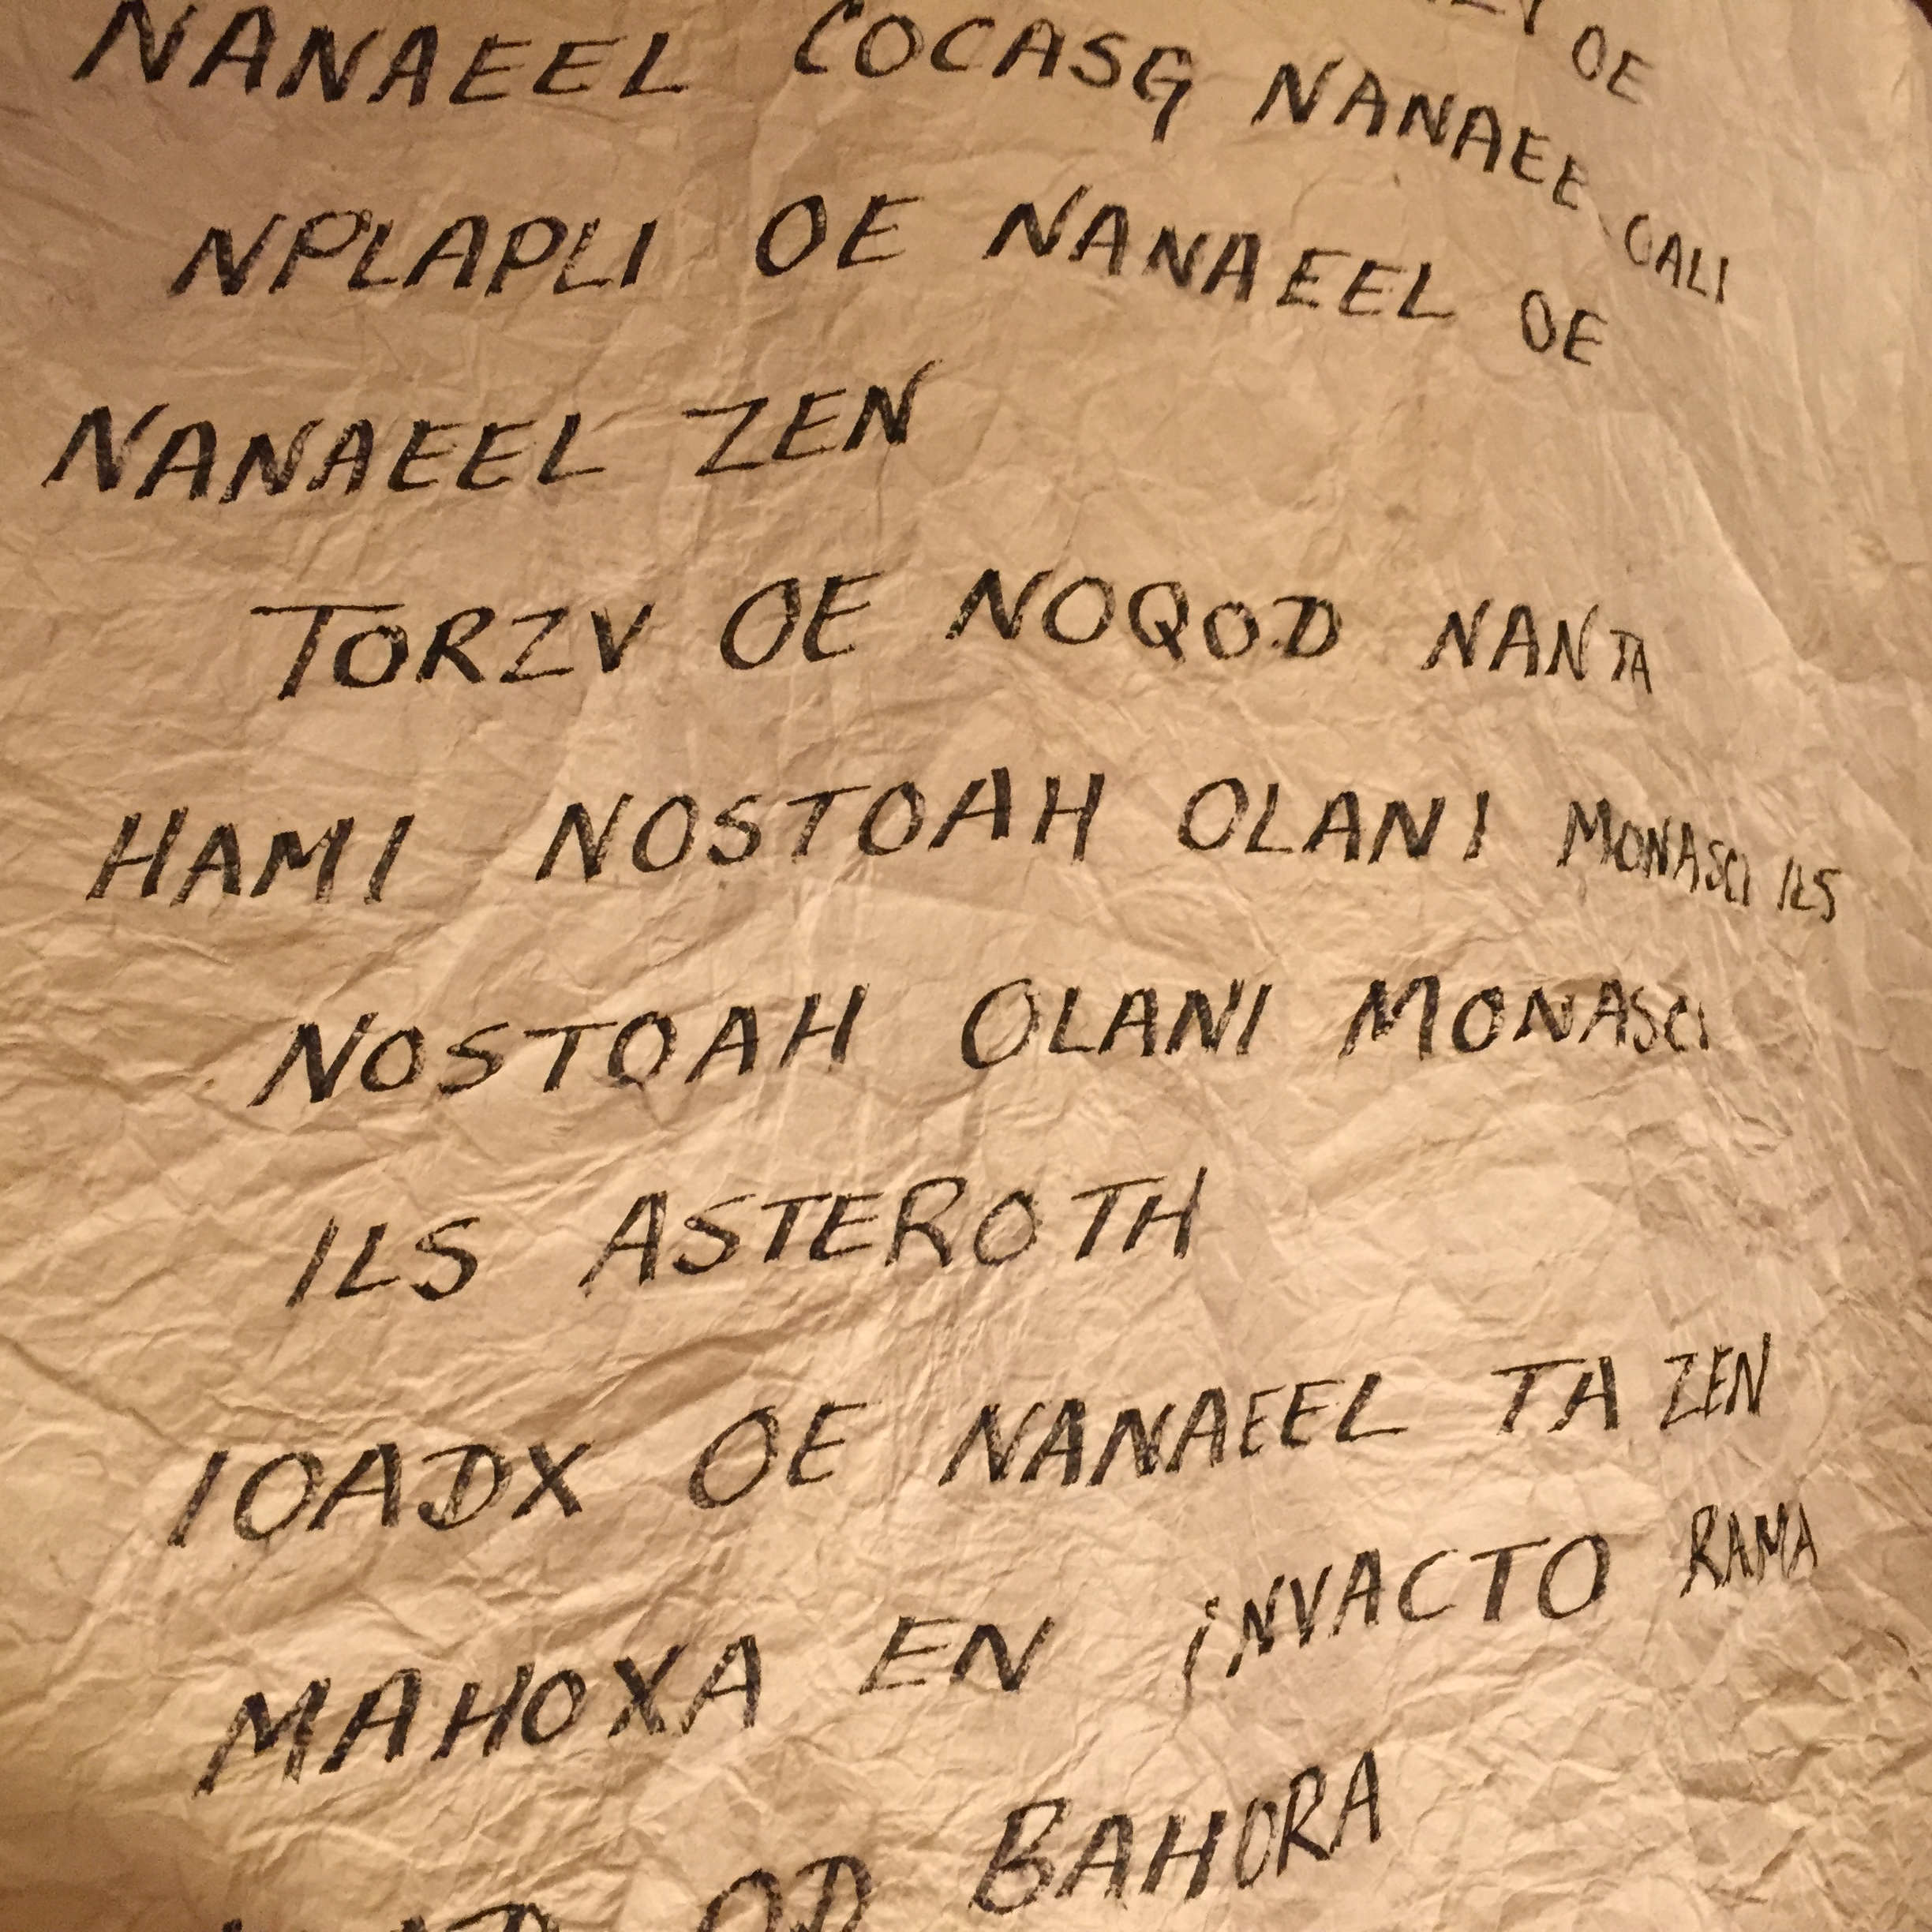 OE
NANAEEL COCASG NANAEE
CALI
NPLAPLI OE NANAEEL OE
NANAEEL ZEN
TORZV OE NOQOD NANTA
HAMI NOSTOAH OLANI MONASCI ILS
NOSTOAH OLANI MONASCI
ILS ASTEROTH
IOADX OE NANAEEL TA ZEN
MAHOXA EN iNVACTO RAMA
OD BAHORA